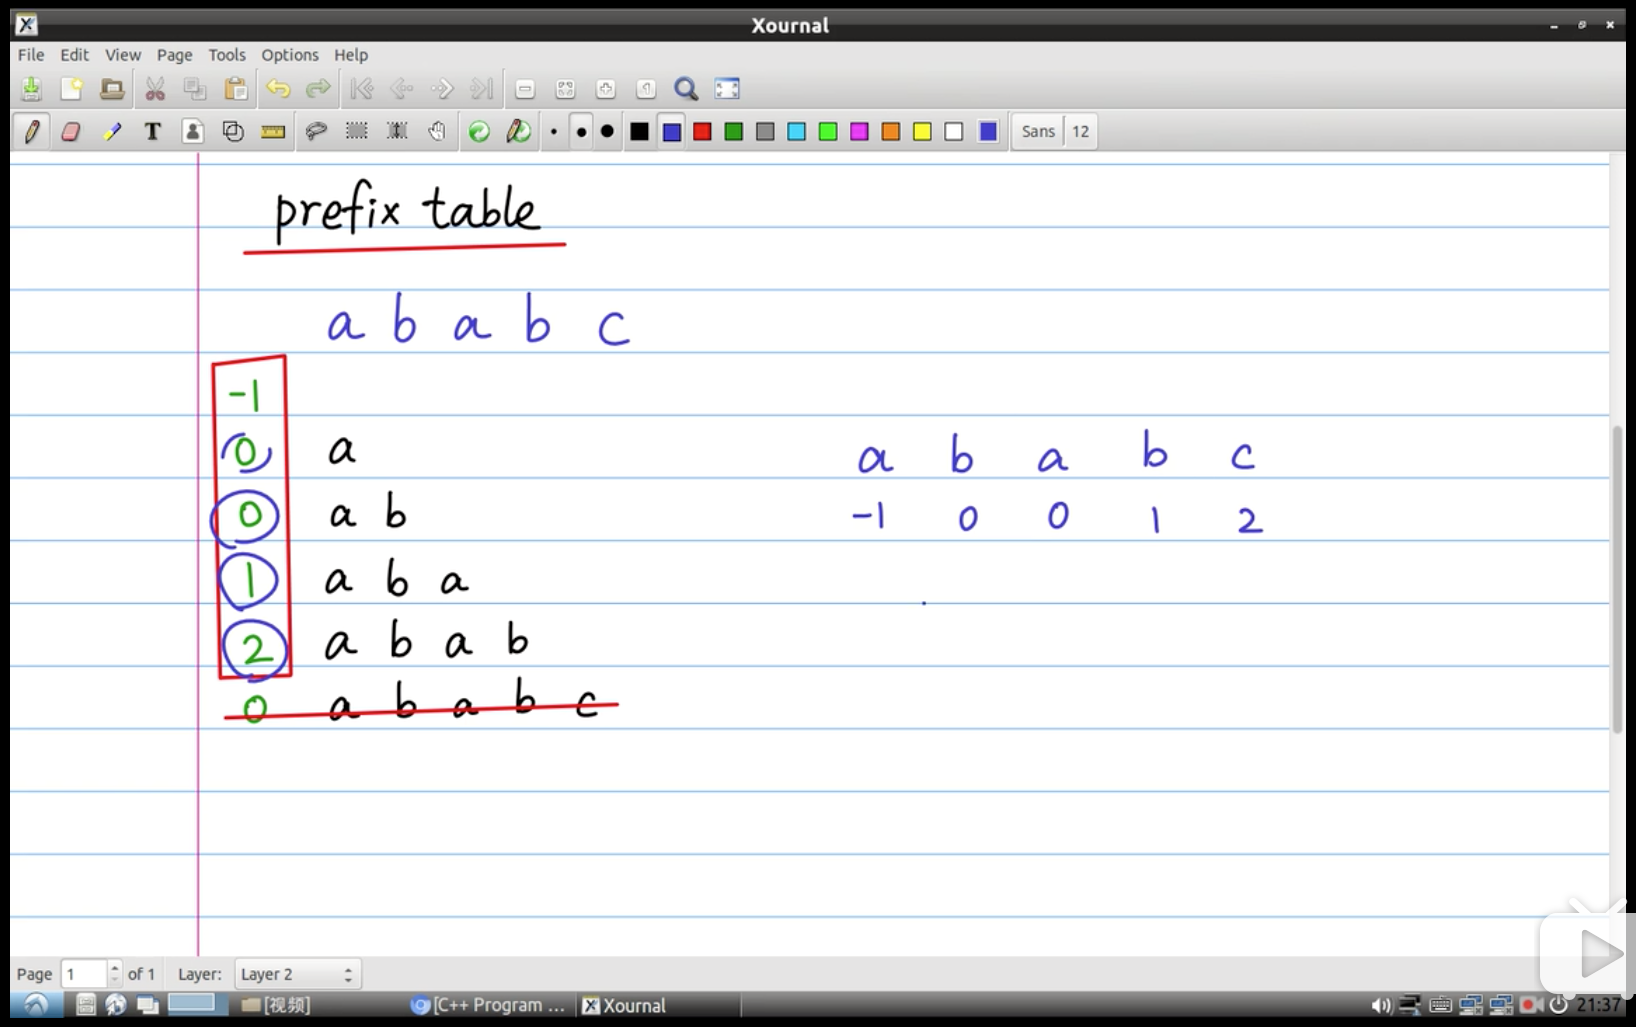 Xournal
File Edit View Page Tools Options Help
T Sans 12
prefix table
a b a b c
-1
0 a
0 a b
1 a b a
2 a b a b
0 a b a b c
a b a b c
-1 0 0 1 2
Page 1 of 1 Layer: Layer 2
[视频] [C++ Program ... Xournal 21:37